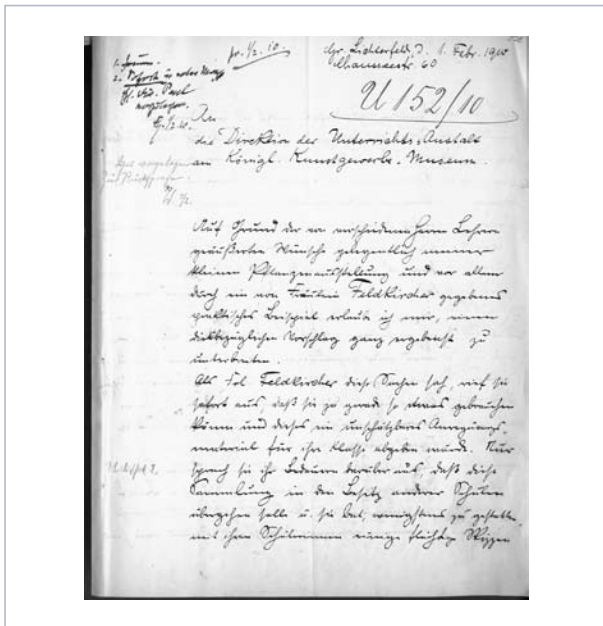 pr. 1/2. 10.
Gr. Lichterfeld, d. 1. Febr. 1910
60
U 152/10
An
die Direktion der Unterrichts-Anstalt
am Königl. Kunstgewerbe-Museum.
Auf Grund der von verschiedenen Herrn Lehrern
geäußerten Wünsche gelegentlich meiner
kleinen Pflanzenausstellung und vor allem
durch ein von Fräulein Feldkircher gegebenes
praktisches Beispiel erlaube ich mir, einen
diesbezüglichen Vorschlag ganz ergebenst zu
unterbreiten.
Als Frl. Feldkircher diese Sachen sah, rief sie
sofort aus, daß sie ja gerade so etwas gebrauchen
könne und dieses ein unschätzbares Anregungs-
material für ihre Klasse abgeben würde. Nur
sprach sie ihr Bedauern darüber aus, daß diese
Sammlung in den Besitz anderer Schulen
übergehen solle u. sie bat, wenigstens zu gestatten,
mit ihren Schülerinnen einige flüchtige Skizzen